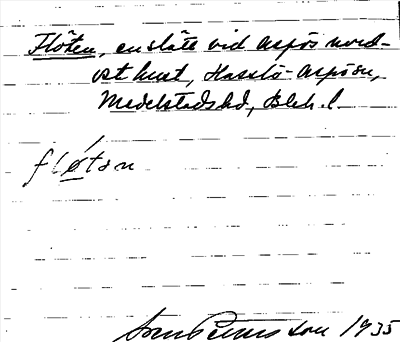 Flöten, en släte vid Aspös nord-
ost kust, Hasslö-Aspö sn,
Medelstads hd, Blek. l.
fløtən
Petersson 1935